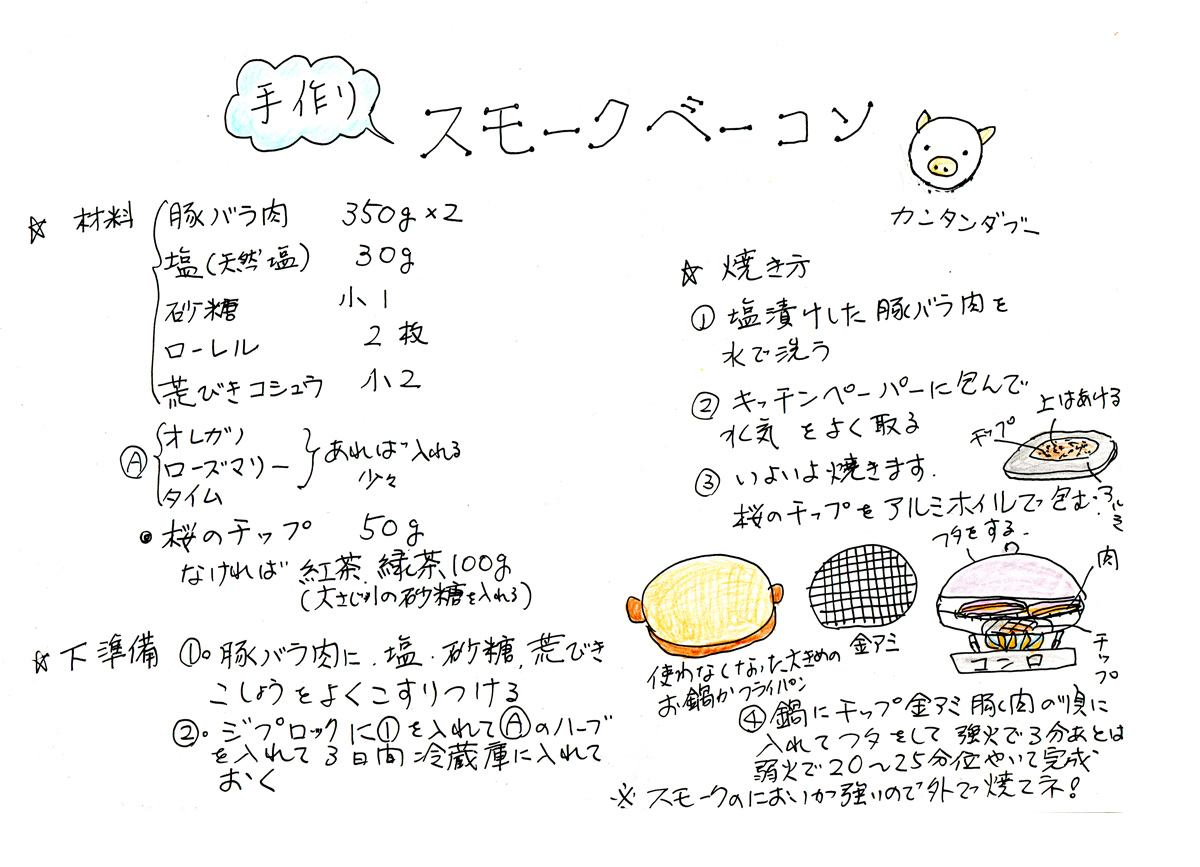 手作り
スモークベーコン
カンタンダブー
☆ 材料
豚バラ肉 350g×2
塩(天然塩) 30g
砂糖 小1
ローレル 2枚
荒びきコショウ 小2
Ⓐ
オレガノ
ローズマリー
タイム
あれば入れる
少々
●桜のチップ 50g
なければ 紅茶.緑茶100g
(大さじ1の砂糖を入れる)
☆下準備 ①。豚バラ肉に.塩.砂糖,荒びき
こしょうをよくこすりつける
②。ジプロックに①を入れてⒶのハーブ
を入れて3日間冷蔵庫に入れて
おく
☆ 焼き方
① 塩漬けした豚バラ肉を
水で洗う
② キッチンペーパーに包んで
水気をよく取る
③ いよいよ焼きます.
桜のチップをアルミホイルで包む.
上はあける
チップ
アルミ
フタをする.
肉
チップ
コンロ
金アミ
使わなくなった大きめの
お鍋かフライパン
④鍋にチップ金アミ豚肉の順に
入れてフタをして 強火で3分あとは
弱火で20〜25分位やいて完成
※スモークのにおいが強いので外で焼てネ!